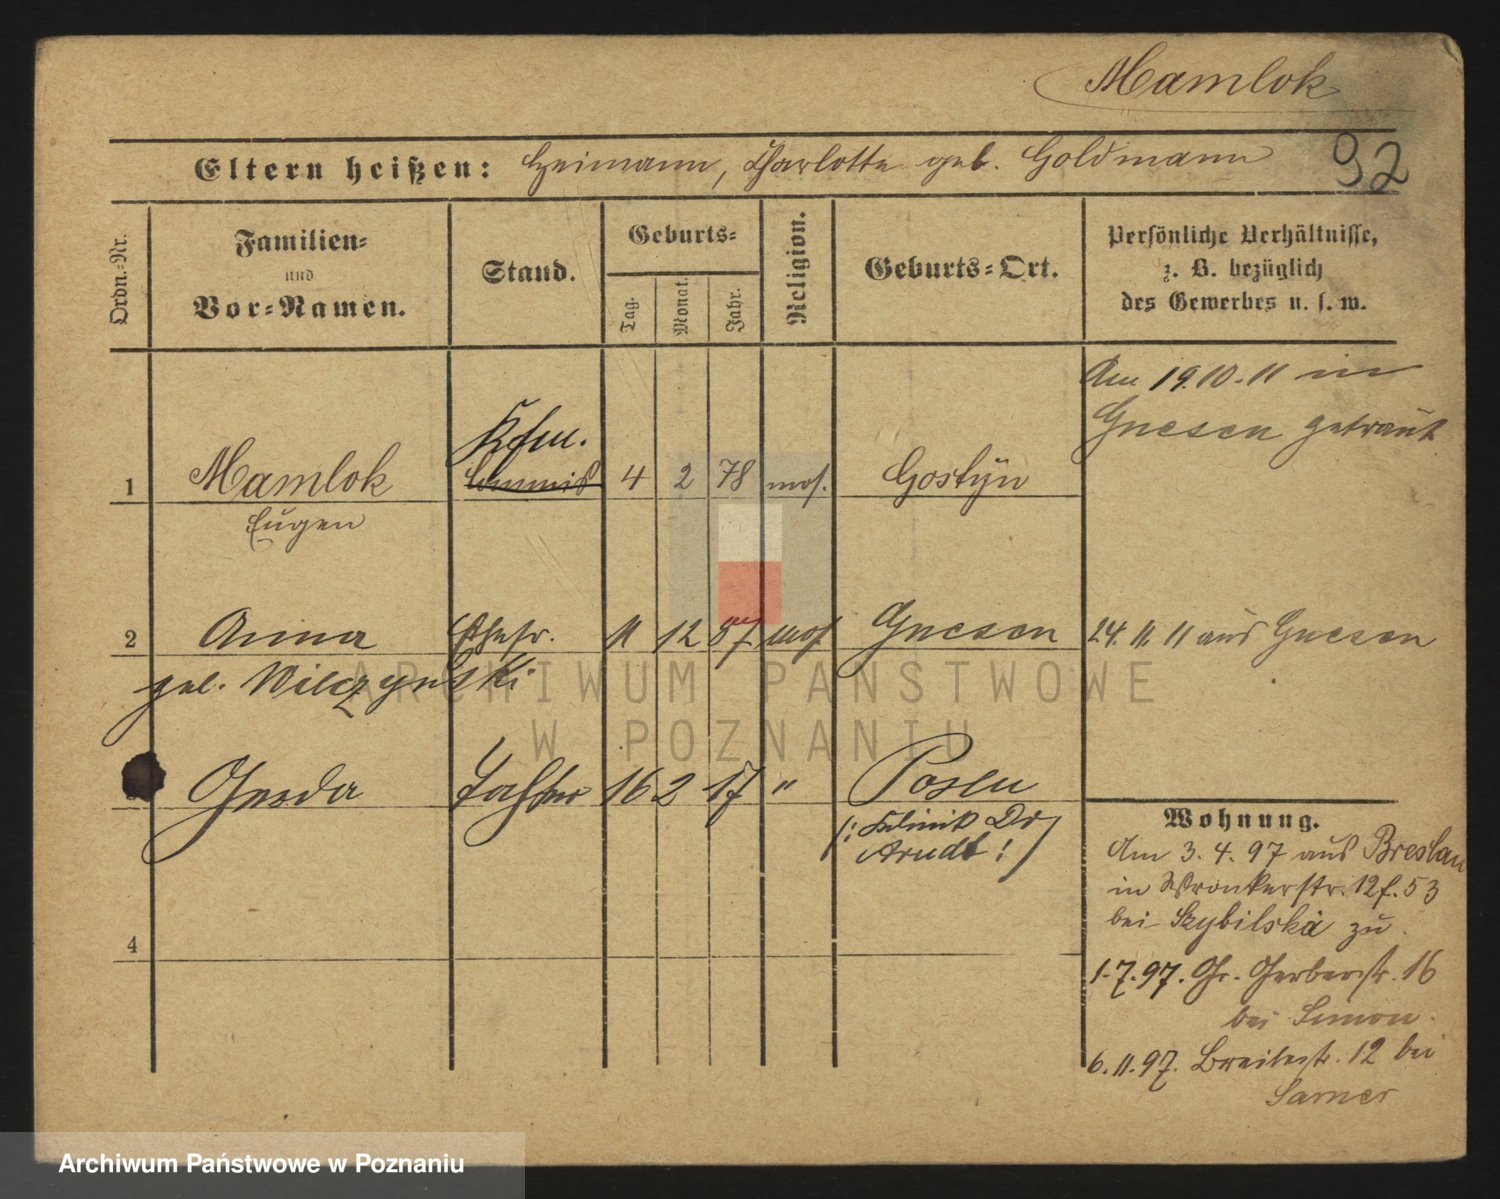 Mamlok
92
Eltern heißen: Heimann, Charlotte geb. Goldmann
Ordn.-Nr.
Familien-
und
Vor-Namen.
Stand.
Geburts-
Tag.
Monat.
Jahr.
Religion.
Geburts-Ort.
Persönliche Verhältnisse,
z. B. bezüglich
des Gewerbes u. s. w.
Am 19.10.11 in
Gnesen getraut
Kfm.
1 Mamlok Commis 4 2 78 mos. Gostyn
Eugen
2 Anna Ehefr. 11 12 87 mos Gnesen 24.11.11 aus Gnesen
geb. Wilczynski
Gerda Tochter 16 2 17 " Posen
/: Klinik Dr
Arndt :/
Wohnung.
Am 3. 4. 97 aus Breslau
in Wronkerstr. 12 f. 53
bei Szybilska zu.
1.7.97. Gr. Gerberstr. 16
bei Simon.
6.11.97. Breitestr. 12 bei
Samer
4
ARCHIWUM PAŃSTWOWE
W POZNANIU
Archiwum Państwowe w Poznaniu